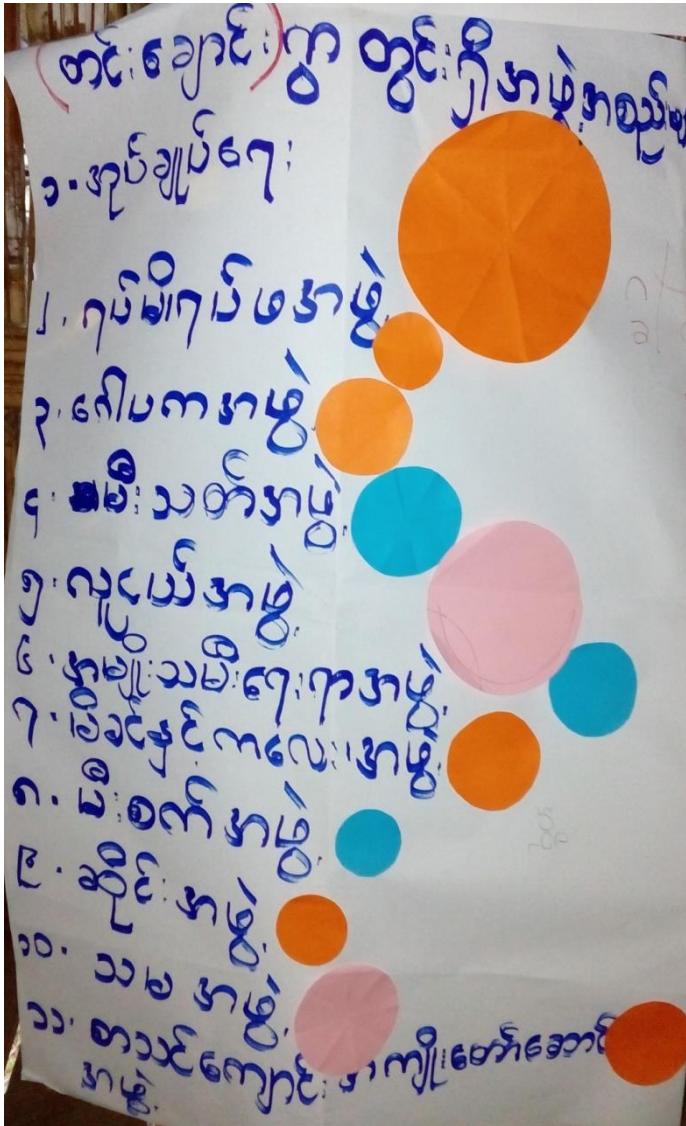 (တင်းချောင်း)ရွာ တွင်းရှိအဖွဲ့အစည်းများ
၁. အုပ်ချုပ်ရေး
၂. ရပ်မိရပ်ဖအဖွဲ့
၃. ဂေါပကအဖွဲ့
၄. မီးသတ်အဖွဲ့
၅. လူငယ်အဖွဲ့
၆. အမျိုးသမီးရေးရာအဖွဲ့
၇. မိခင်နှင့်ကလေးအဖွဲ့
၈. မီးစက်အဖွဲ့
၉. ဆိုင်းအဖွဲ့
၁၀. သမအဖွဲ့
၁၁. စာသင်ကျောင်းအကျိုးတော်ဆောင်
အဖွဲ့